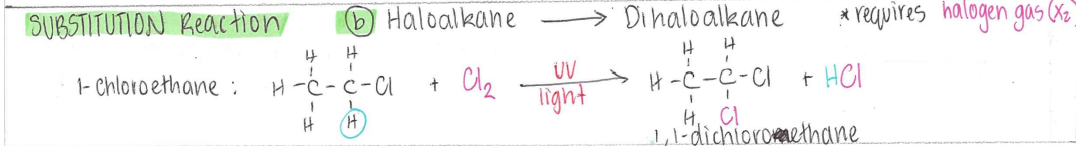 SUBSTITUTION Reaction (b) Haloalkane → Dihaloalkane * requires halogen gas (X2
H H H H
1-Chloroethane : H-C-C-Cl + Cl2 UV light → H-C-C-Cl + HCl
H H H Cl
1,1-dichloroethane